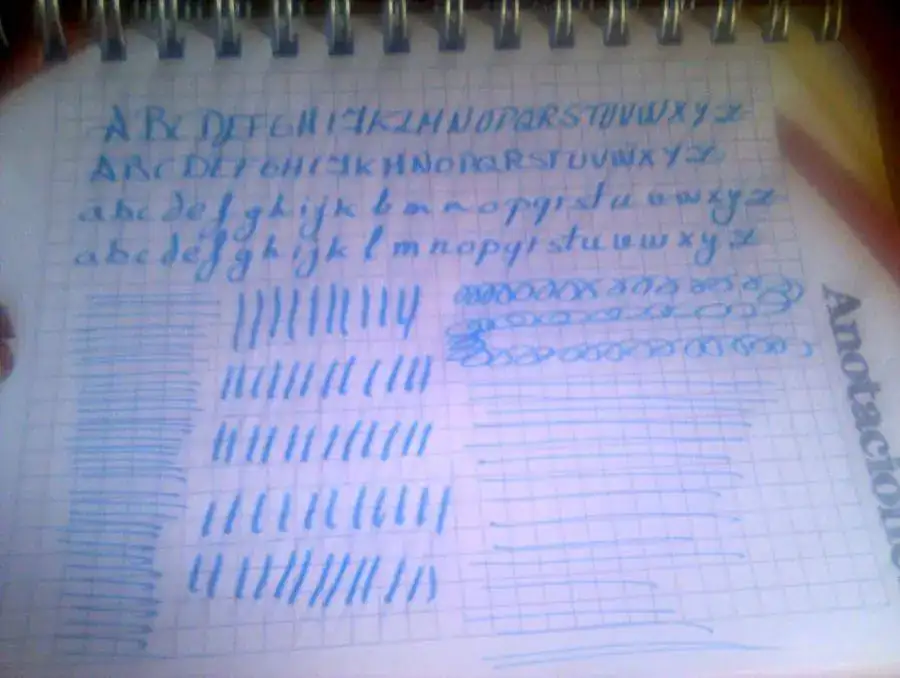 A B C D E F G H I J K L M N O P Q R S T U V W X Y Z
A B C D E F G H I J K M N O P Q R S T U V W X Y Z
a b c d e f g h i j k l m n o p q r s t u v w x y z
a b c d e f g h i j k l m n o p q r s t u v w x y z
Anotacione